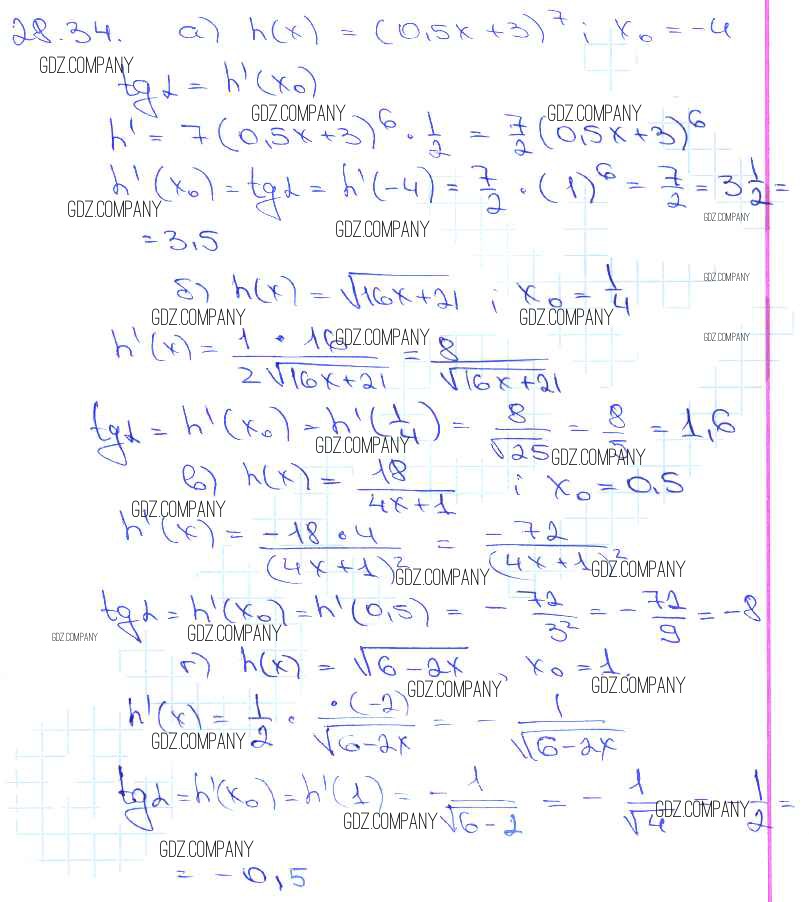 28.34. а) h(x) = (0,5x + 3)^7 ; x₀ = -4
GDZ.COMPANY
tg α = h'(x₀)
GDZ.COMPANY GDZ.COMPANY
h' = 7(0,5x+3)^6 · 1/2 = 7/2 (0,5x+3)^6
h'(x₀) = tg α = h'(-4) = 7/2 · (1)^6 = 7/2 = 3 1/2 =
GDZ.COMPANY GDZ.COMPANY GDZ.COMPANY
= 3,5
б) h(x) = √(16x+21) ; x₀ = 1/4
GDZ.COMPANY
GDZ.COMPANY GDZ.COMPANY
h'(x) = 1 · 16 / 2√(16x+21) = 8 / √(16x+21)
GDZ.COMPANY GDZ.COMPANY
tg α = h'(x₀) = h'(1/4) = 8/√25 = 8/5 = 1,6
GDZ.COMPANY GDZ.COMPANY
в) h(x) = 18 / 4x+1 ; x₀ = 0,5
GDZ.COMPANY
h'(x) = -18 · 4 / (4x+1)² = -72 / (4x+1)²
GDZ.COMPANY GDZ.COMPANY
tg α = h'(x₀) = h'(0,5) = - 72/3² = - 72/9 = -8
GDZ.COMPANY GDZ.COMPANY
г) h(x) = √(6-2x) , x₀ = 1.
GDZ.COMPANY GDZ.COMPANY
h'(x) = 1/2 · ·(-2) / √(6-2x) = - 1 / √(6-2x)
GDZ.COMPANY
tg α = h'(x₀) = h'(1) = - 1/√(6-2) = - 1/√4 = - 1/2 =
GDZ.COMPANY GDZ.COMPANY
GDZ.COMPANY
= -0,5